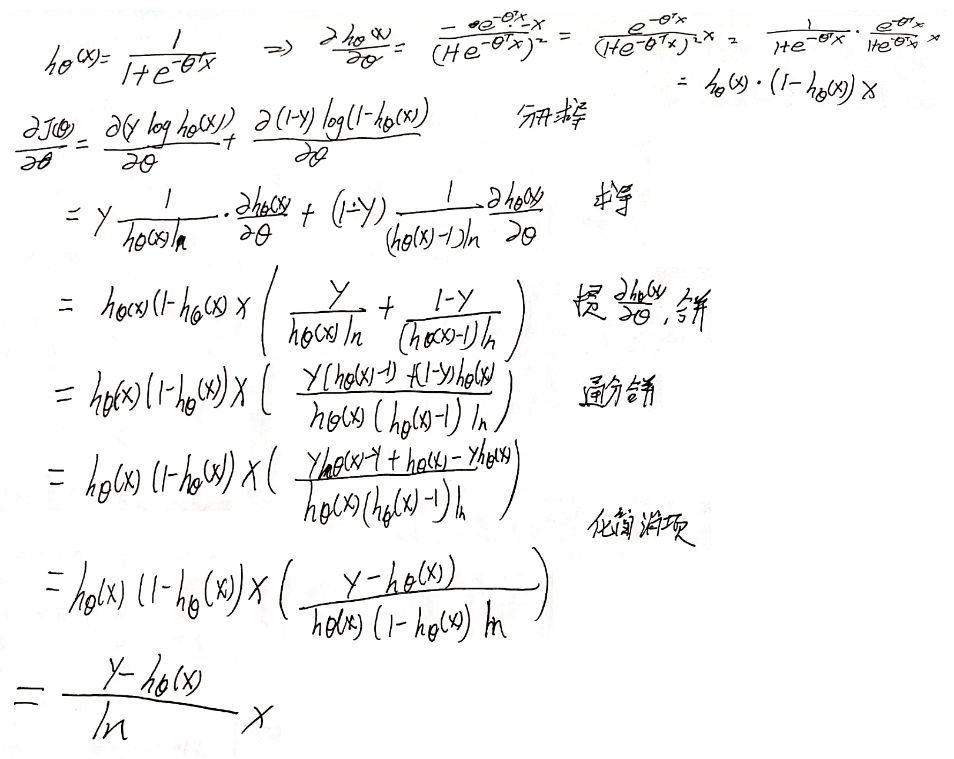 hθ(x) = 1/(1+e^(-θᵀx)) ⇒ ∂hθ(x)/∂θ = -e^(-θᵀx)·-x/(1+e^(-θᵀx))² = e^(-θᵀx)/(1+e^(-θᵀx))² x = 1/(1+e^(-θᵀx)) · e^(-θᵀx)/(1+e^(-θᵀx)) x
= hθ(x)·(1-hθ(x)) x
∂J(θ)/∂θ = ∂(y log hθ(x))/∂θ + ∂(1-y) log(1-hθ(x))/∂θ 分开求导
= y 1/(hθ(x) ln) · ∂hθ(x)/∂θ + (1-y) 1/((hθ(x)-1) ln) ∂hθ(x)/∂θ 求导
= hθ(x)(1-hθ(x) x ( y/(hθ(x) ln) + (1-y)/((hθ(x)-1) ln) ) 提 ∂hθ(x)/∂θ, 合并
= hθ(x)(1-hθ(x)) x ( (y(hθ(x)-1) + (1-y)hθ(x))/(hθ(x)(hθ(x)-1) ln) ) 通分合并
= hθ(x)(1-hθ(x)) x ( (yhθ(x)-y+hθ(x)-yhθ(x))/(hθ(x)(hθ(x)-1) ln) )
化简消项
= hθ(x)(1-hθ(x)) x ( (y-hθ(x))/(hθ(x)(1-hθ(x)) ln) )
= (y-hθ(x))/ln x